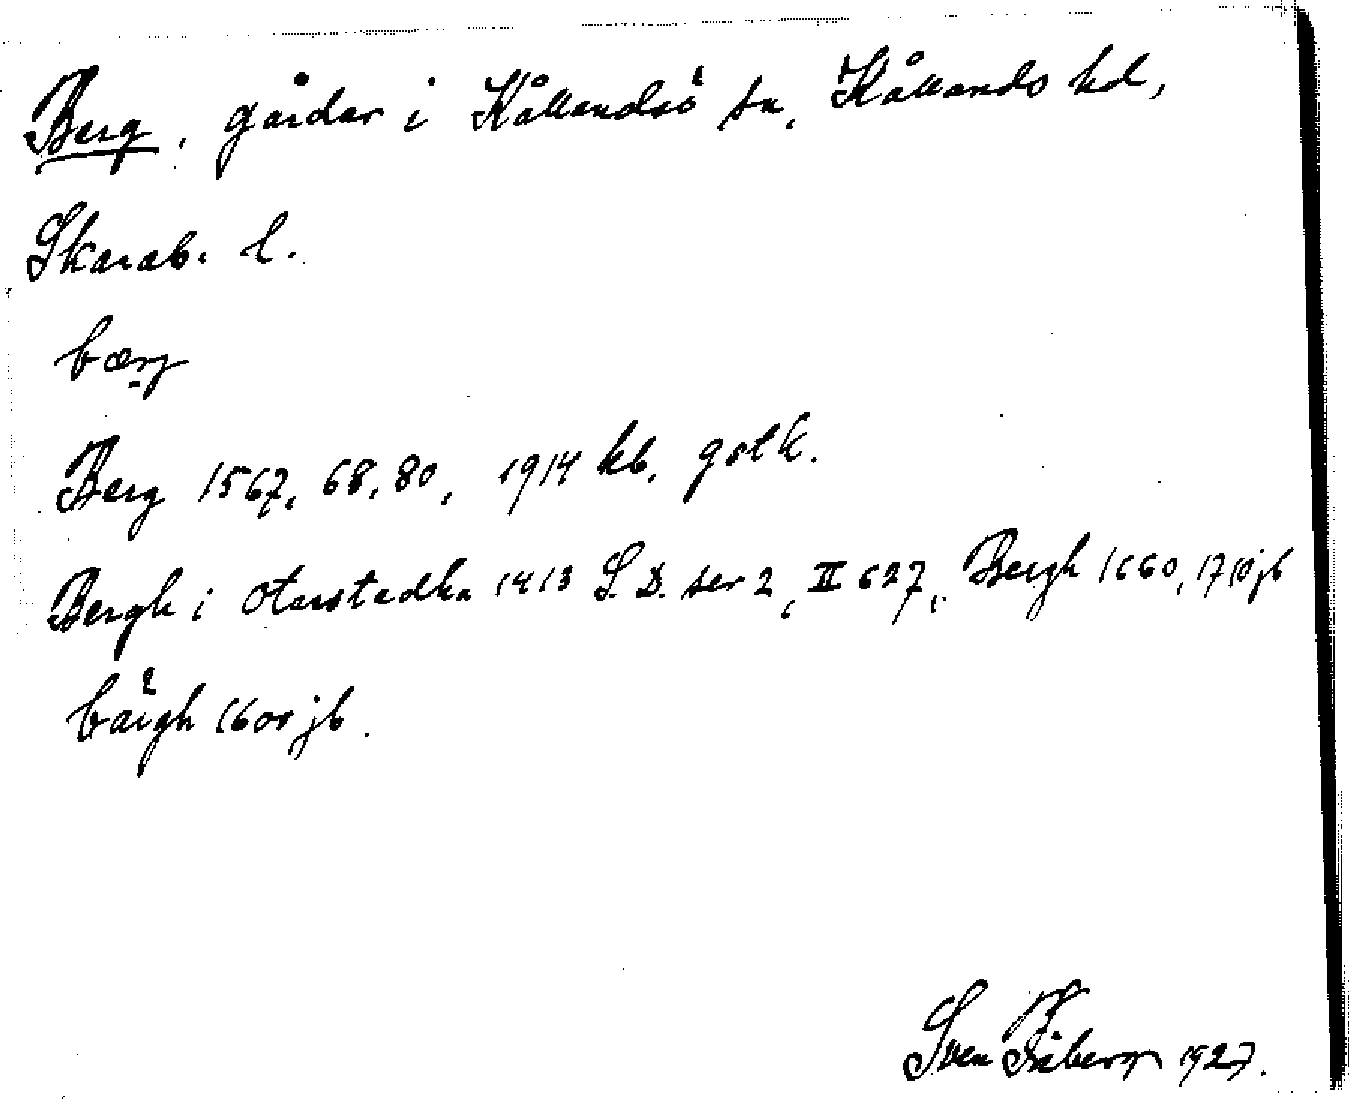 Berg, gårdar i Kållandsö sn, Kållands hd,
Skarab. l.
bærg
Berg 1567, 68, 80, 1914 kb, gslk.
Bergh i Otarstadha 1413 S.D. ser 2, II 627, Bergh 1660, 1710 jb
bärgh 1600 jb.
Sven Fåberg 1927.